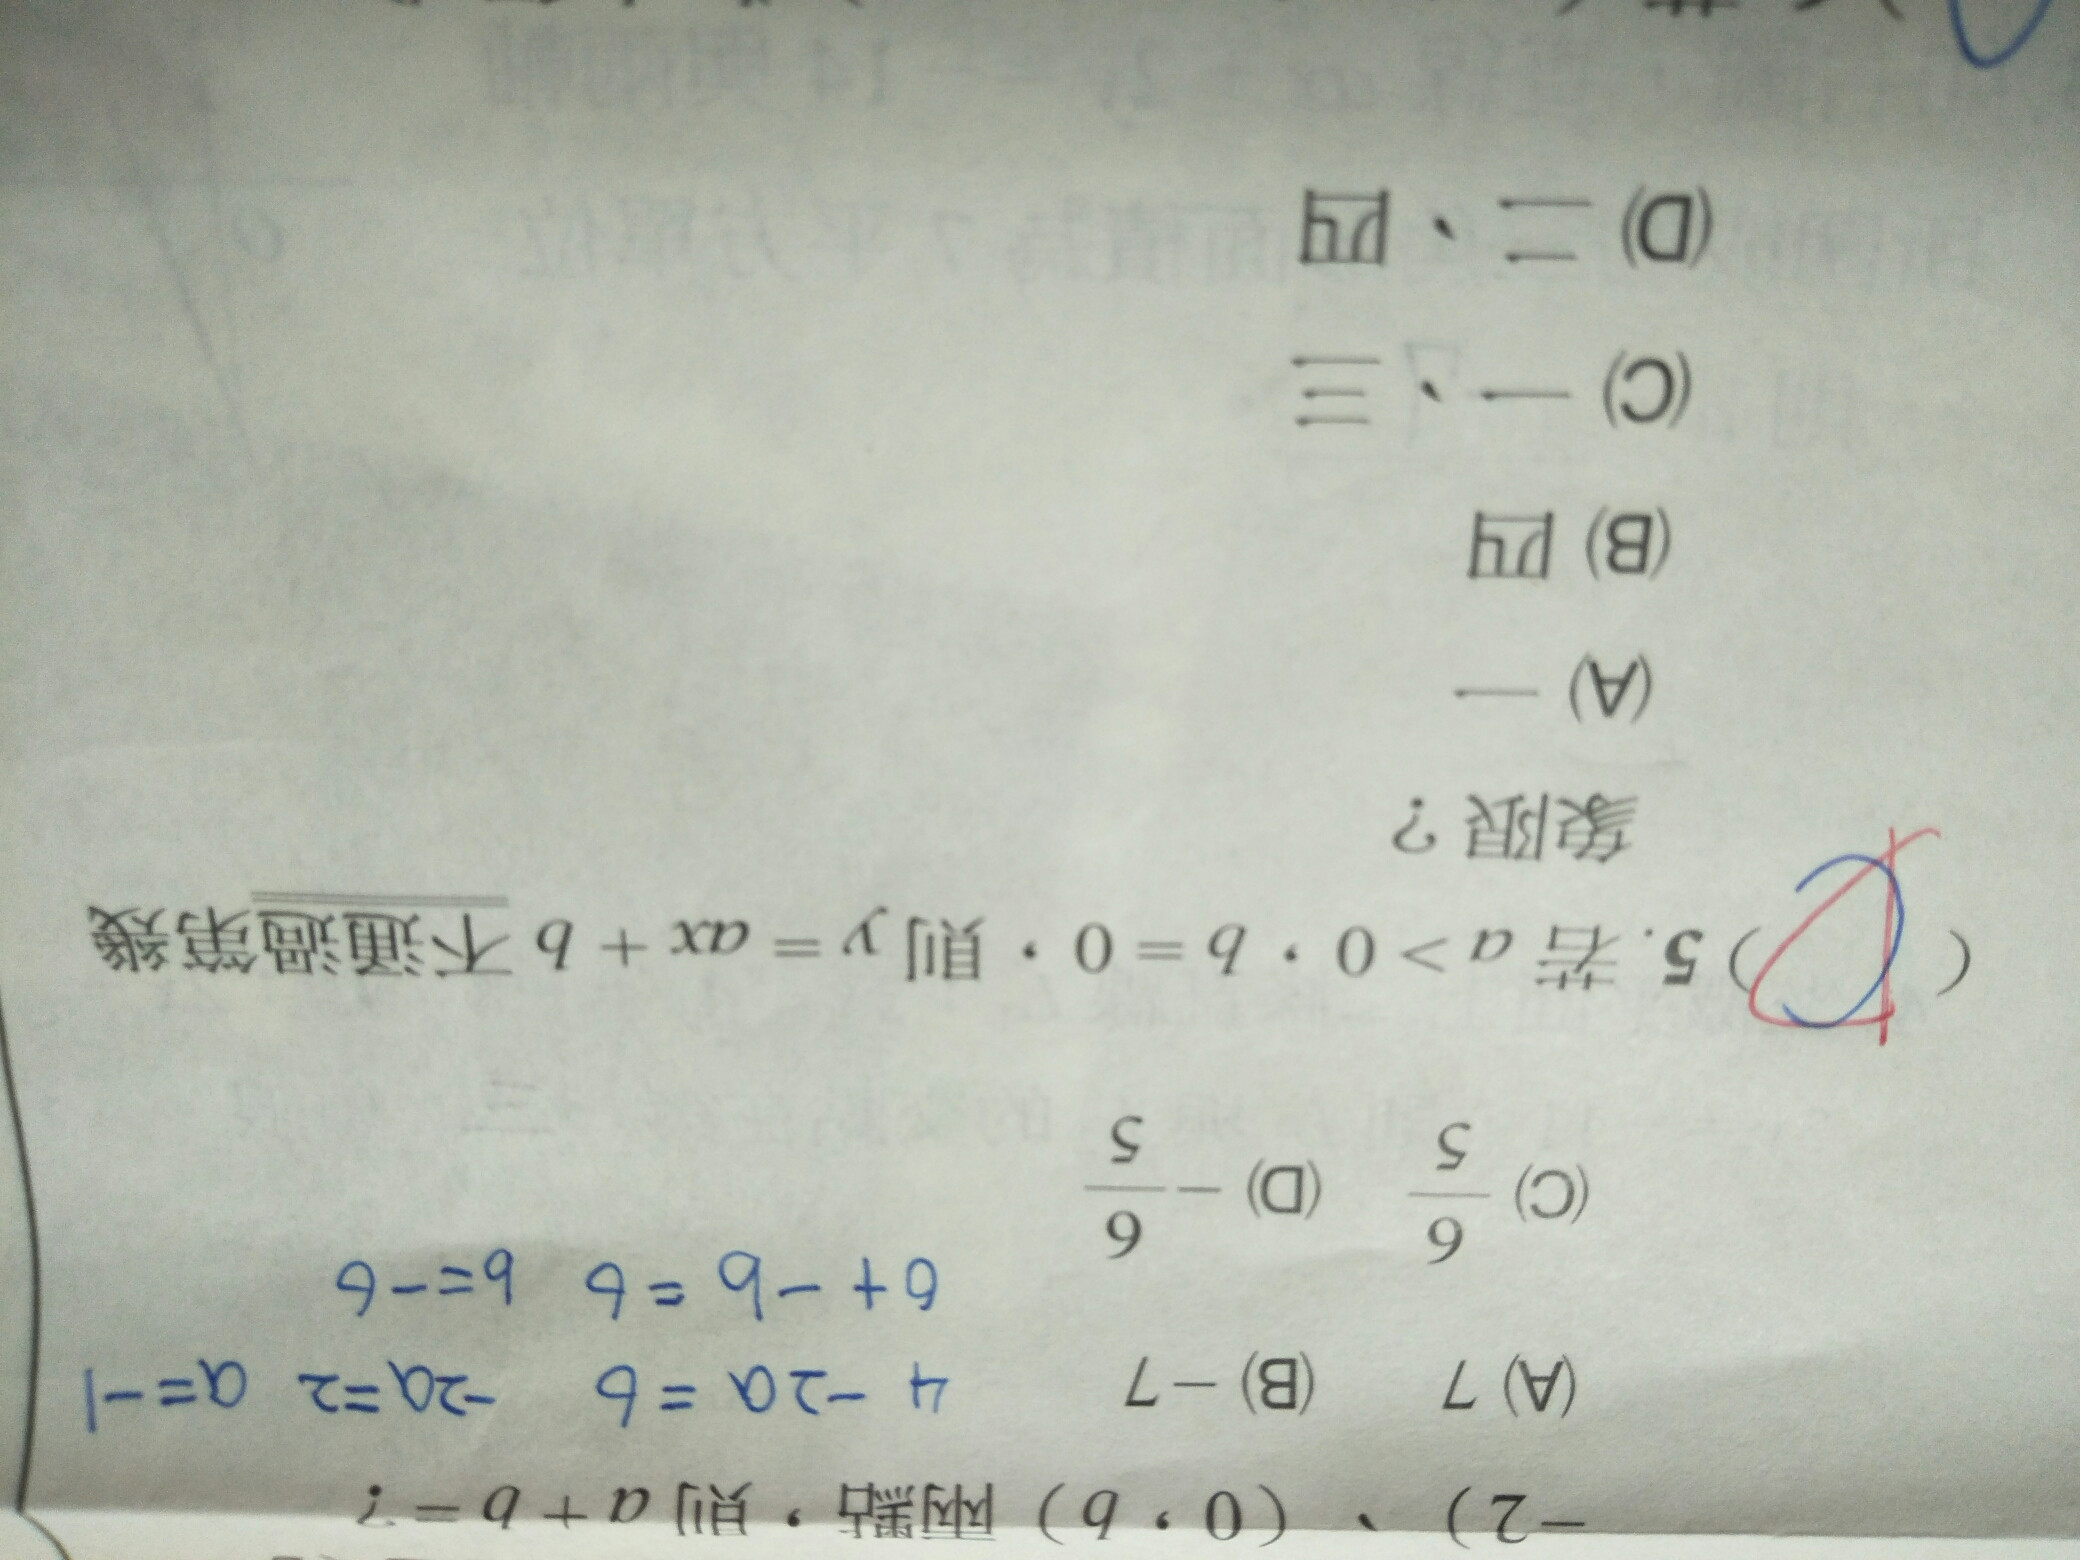 -2)、(0,b)兩點,則 a+b=?
(A) 7 (B) -7
4-2a=6 -2a=2 a=-1
6+-b=6 b=-6
(C) 6/5 (D) -6/5
( ) 5. 若 a>0,b=0,則 y=ax+b 不通過第幾
象限?
(A) 一
(B) 四
(C) 一、三
(D) 二、四